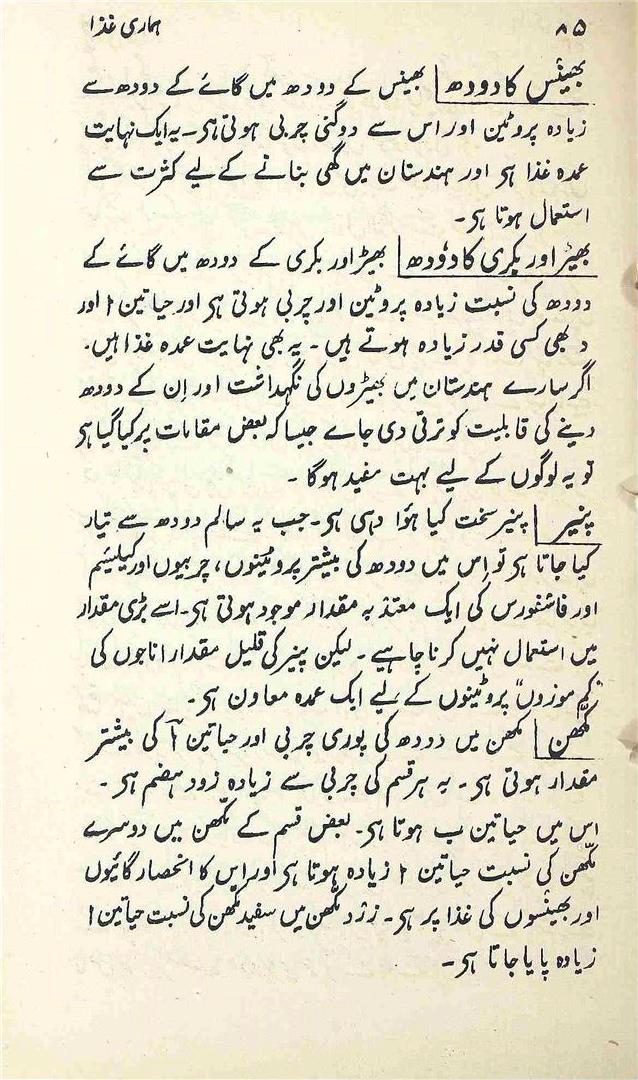 ۸۵ ہماری غذا
بھینس کا دودھ بھینس کے دودھ میں گائے کے دودھ سے
زیادہ پروٹین اور اس سے دوگنی چربی ہوتی ہی۔ یہ ایک نہایت
عمدہ غذا ہی اور ہندستان میں گھی بنانے کے لیے کثرت سے
استعمال ہوتا ہی۔
بھیڑ اور بکری کا دودھ بھیڑ اور بکری کے دودھ میں گائے کے
دودھ کی نسبت زیادہ پروٹین اور چربی ہوتی ہی اور حیاتین ا اور
د بھی کسی قدر زیادہ ہوتے ہیں۔ یہ بھی نہایت عمدہ غذا ہیں۔
اگر سارے ہندستان میں بھیڑوں کی نگہداشت اور اِن کے دودھ
دینے کی قابلیت کو ترقی دی جاے جیسا کہ بعض مقامات پر کیا گیا ہی
تو یہ لوگوں کے لیے بہت مفید ہوگا۔
پنیر پنیر سخت کیا ہوٴا دہی ہی۔ جب یہ سالم دودھ سے تیار
کیا جاتا ہی تو اِس میں دودھ کی بیشتر پروٹینوں، چربیوں اور کیلسیم
اور فاسفورس کی ایک معتدبہ مقدار موجود ہوتی ہی۔ اسے بڑی مقدار
میں استعمال نہیں کرنا چاہیے۔ لیکن پنیر کی قلیل مقدار اناجوں کی
”کم موزوں“ پروٹینوں کے لیے ایک عمدہ معاون ہی۔
مکھّن مکھن میں دودھ کی پوری چربی اور حیاتین آ کی بیشتر
مقدار ہوتی ہی۔ یہ ہر قسم کی چربی سے زیادہ زود ہضم ہی۔
اس میں حیاتین ب ہوتا ہی۔ بعض قسم کے مکھّن میں دوسرے
مکھّن کی نسبت حیاتین ا زیادہ ہوتا ہی اور اس کا انحصار گائیوں
اور بھینسوں کی غذا پر ہی۔ زرد مکھّن میں سفید مکھّن کی نسبت حیاتین ا
زیادہ پایا جاتا ہی۔